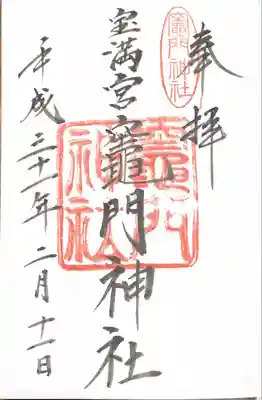 奉拝
竈門神社
宝満宮竈門神社
竈門神社
平成三十一年二月十一日